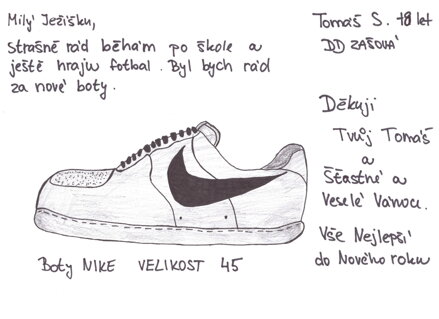 Milý Ježíšku,
strašně rád běhám po škole a
ještě hraju fotbal. Byl bych rád
za nové boty.
Tomáš S. 18 let
DD ZAŠOVÁ
Děkuji
Tvůj Tomáš
a
Šťastné a
Veselé Vánoce.
Vše Nejlepší
do Nového roku
Boty NIKE VELIKOST 45